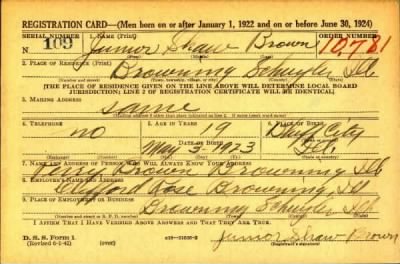 REGISTRATION CARD—(Men born on or after January 1, 1922 and on or before June 30, 1924)
SERIAL NUMBER 1. NAME (Print) ORDER NUMBER
N 109 Junior Shaw Brown 10,781
(First) (Middle) (Last)
2. PLACE OF RESIDENCE (Print)
Browning Schuyler Ill
(Number and street) (Town, township, village, or city) (County) (State)
[THE PLACE OF RESIDENCE GIVEN ON THE LINE ABOVE WILL DETERMINE LOCAL BOARD
JURISDICTION; LINE 2 OF REGISTRATION CERTIFICATE WILL BE IDENTICAL]
3. MAILING ADDRESS
same
4. TELEPHONE 5. AGE IN YEARS 6. PLACE OF BIRTH
no 19 Bluff City
DATE OF BIRTH
May 5 1923 Ill.
7. NAME AND ADDRESS OF PERSON WHO WILL ALWAYS KNOW YOUR ADDRESS
Perry Brown Browning Ill
8. EMPLOYER'S NAME AND ADDRESS
Clifford Rose Browning Ill
9. PLACE OF EMPLOYMENT OR BUSINESS
Browning Schuyler Ill
(Number and street or R. F. D. number) (Town) (County) (State)
I AFFIRM THAT I HAVE VERIFIED ABOVE ANSWERS AND THAT THEY ARE TRUE.
D. S. S. Form 1
(Revised 6-1-42) (over)
Junior Shaw Brown